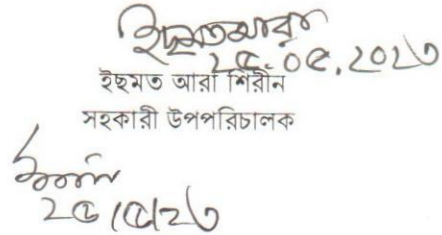 ইছমত আরা
২৫.০৫.২০২৩
ইছমত আরা শিরীন
সহকারী উপপরিচালক
২৫/৫/২৩